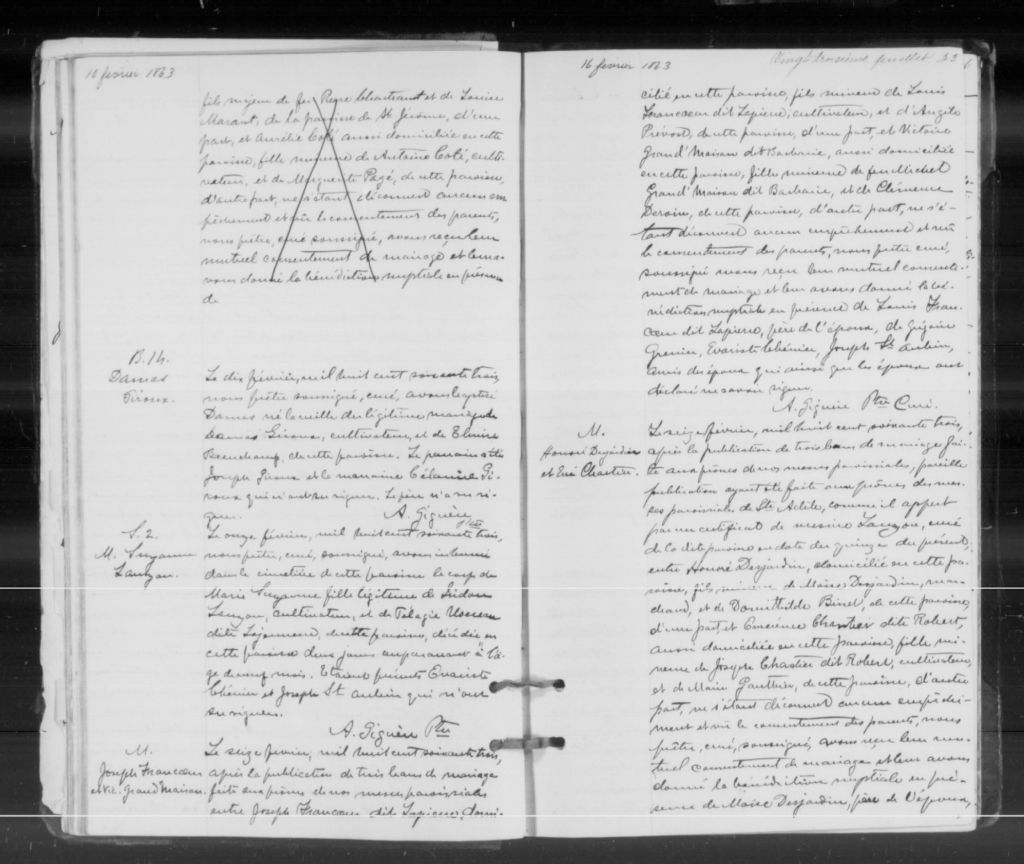 10 février 1863
fils majeur de feu Pierre Charbraut et de Louise
Marant, de la paroisse de St Jérome, d'une
part, et Aurélie Coté aussi domiciliée en cette
paroisse, fille mineure de Antoine Coté, culti-
vateur, et de Marguerite Pagé, de cette paroisse,
d'autre part, ne s'étant découvert aucun em
pêchement et vû le consentement des parents,
nous prêtre, curé soussigné, avons reçu leur
mutuel consentement de mariage et leur a-
vons donné la bénédiction nuptiale en présence
de
B. 14.
Damas
Giroux.
Le dix février, mil huit cent soixante trois,
nous prêtre soussigné, curé, avons baptisé
Damas né la veille du légitime mariage de
Damas Giroux, cultivateur, et de Elmire
Beauchamp, de cette paroisse. Le parrain a été
Joseph Giroux et la marraine Célanire Gi-
roux qui n'ont su signer. Le père n'a su si-
gner.
A. Giguère Ptre
S. 2.
M. Suzanne
Lauzon.
Le onze février, mil huit cent soixante trois,
nous prêtre, curé, soussigné, avons inhumé
dans le cimetière de cette paroisse le corps de
Marie Suzanne fille légitime de Isidore
Lauzon, cultivateur, et de Pélagie
dite Lajeunesse, de cette paroisse, décédée en
cette paroisse deux jours auparavant à l'â-
ge de neuf mois. Etaient présents Evariste
Chénier et Joseph St Aubin qui n'ont
su signer.
A. Giguère Ptre
M.
Joseph Francoeur
et Vic. Grand'Maison.
Le seize février, mil huit cent soixante trois,
après la publication de trois bans de mariage
faite aux prônes de nos messes paroissiales
entre Joseph Francoeur dit Lapierre, domi-
16 février 1863
Vingt troisième feuillet 23
cilié en cette paroisse, fils mineur de Louis
Francoeur dit Lapierre, cultivateur, et d'Angèle
Prévost, de cette paroisse, d'une part, et Victoire
Grand'Maison dit Barbarie, aussi domiciliée
en cette paroisse, fille mineure de feu Michel
Grand'Maison dit Barbarie, et de Clémence
Deroin, de cette paroisse, d'autre part, ne s'é-
tant découvert aucun empêchement et vû
le consentement des parents, nous prêtre curé,
soussigné avons reçu leur mutuel consente-
ment de mariage et leur avons donné la bé-
nédiction nuptiale en présence de Louis Fran-
coeur dit Lapierre, père de l'époux, de
Grenier, Evariste Chénier, Joseph St Aubin,
amis des époux qui ainsi que les époux ont
déclaré ne savoir signer.
A. Giguère Ptre Curé.
M.
Honoré Desjardin
et Em. Chartier.
Le seize février, mil huit cent soixante trois,
après la publication de trois bans de mariage fai-
te aux prônes de nos messes paroissiales, pareille
publication ayant été faite aux prônes des mes-
ses paroissiales de Ste Adèle, comme il appert
par un certificat de messire Lauzon, curé
de la dite paroisse en date du quinze du présent,
entre Honoré Desjardin, domicilié en cette pa-
roisse, fils mineur de Moïse Desjardin, mar-
chand, et de Domithilde Binet, de cette paroisse,
d'une part, et Emérence Chartier dite Robert,
aussi domiciliée en cette paroisse, fille mi-
neure de Joseph Chartier dit Robert, cultivateur,
et de Marie Gauthier, de cette paroisse, d'autre
part, ne s'étant découvert aucun empêche-
ment et vû le consentement des parents, nous
prêtre, curé, soussigné, avons reçu leur mu-
tuel consentement de mariage et leur avons
donné la bénédiction nuptiale en pré-
sence de Moïse Desjardin, père de l'époux,